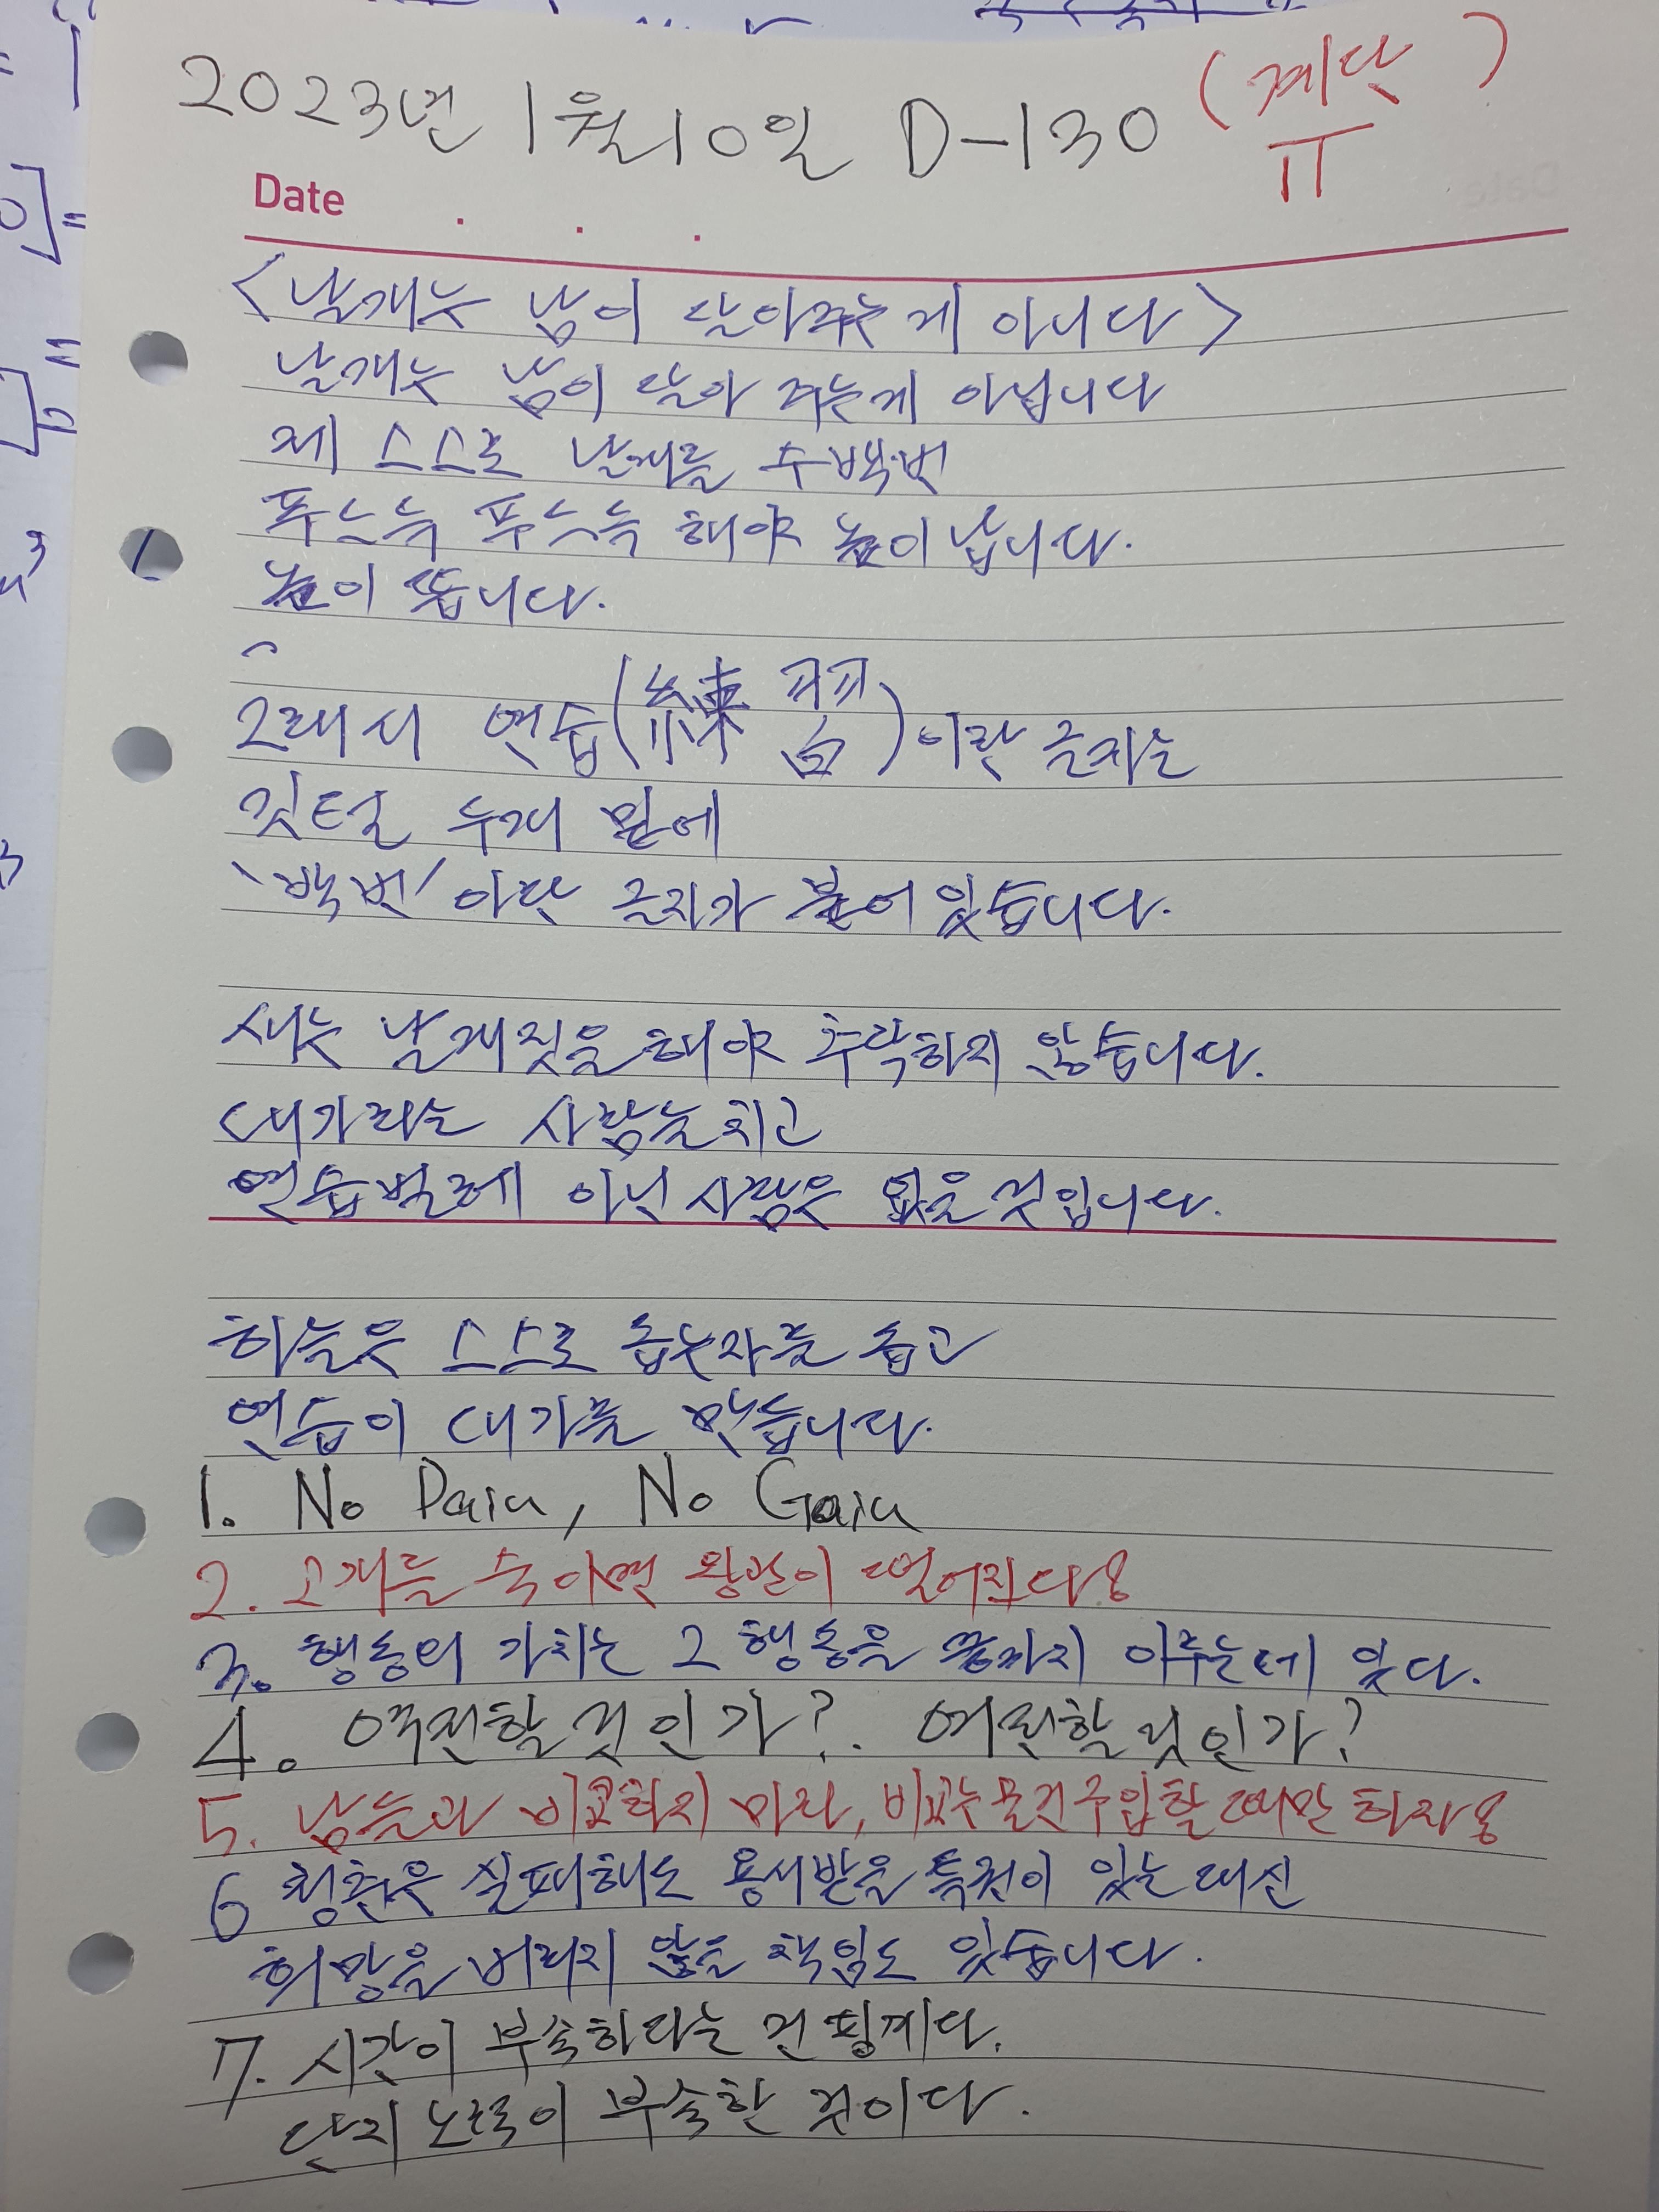 2023년 1월 10일 D-130 (계단)
π
Date . . .
<날개는 남이 달아주는게 아니다>
날개는 남이 달아 주는게 아닙니다
제 스스로 날개를 수백번
푸스득 푸스득 해야 높이 납니다.
높이 뜹니다.
그래서 연습(練習)이란 글자는
깃털 두개 밑에
'백번'이란 글자가 붙어 있습니다.
새는 날개짓을 해야 추락하지 않습니다.
대가라는 사람는 치고
연습벌레 아닌 사람은 없을 것입니다.
하늘은 스스로 돕는자를 돕고
연습이 대가를 만듭니다.
1. No Pain, No Gain
2. 고개를 숙이면 왕관이 떨어진다!
3. 행동의 가치는 그 행동을 끝까지 이루는데 있다.
4. 역전할 것인가? 여전할 것인가?
5. 남들과 비교하지 마라, 비교는 물건구입할 때만 하자!
6 청춘은 실패해도 용서받을 특권이 있는 대신
희망을 버리지 않을 책임도 있습니다.
7. 시간이 부족하다는 건 핑계다.
단지 노력이 부족한 것이다.